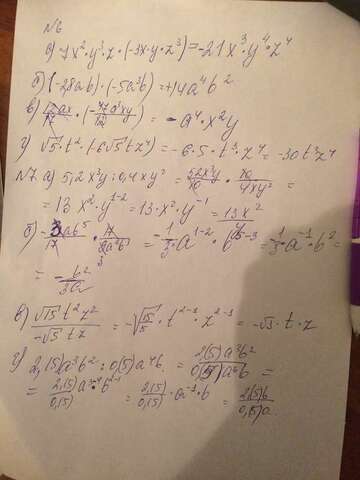 №6
а) -7x²·y³·z·(-3x·y·z³)=-21x³y⁴·z⁴
б) (-28ab)·(-5a³b)=+14a⁴b²
в) 12ax/17·(-17a³xy/12)= -a⁴·x²y
г) √5·t²·(-6√5tz⁴)=-6·5·t³·z⁴=-30t³z⁴
№7. а) 5,2x³y:0,4xy²=52x³y/10·10/4xy²=
=13x²·y¹⁻²=13·x²·y⁻¹=13x²/y
б) -3ab⁵/17·17/9a²b³=-1/3·a¹⁻²·b⁵⁻³=-1/3·a⁻¹·b²=
=-b²/3a
в) √15t²z²/-√5tz=-√15/5·t²⁻¹·z²⁻¹=-√3·t·z
г) 2,(5)a³b²:0,(5)a⁴b=2,(5)a³b²/0,(5)a⁴b=
=2,(5)a³⁻⁴b²⁻¹/0,(5)=2,(5)/0,(5)·a⁻¹·b=2,(5)b/0,(5)a